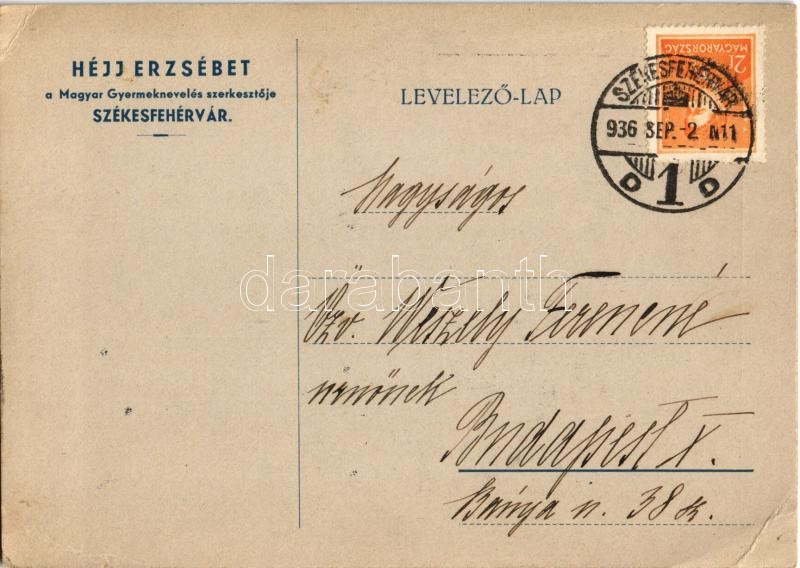 HÉJJ ERZSÉBET
a Magyar Gyermeknevelés szerkesztője
SZÉKESFEHÉRVÁR.
LEVELEZŐ-LAP
2f
MAGYARORSZÁG
SZÉKESFEHÉRVÁR
936 SEP.-2 N11
D 1 D
Nagyságos
Özv. Weszely Ferencné
urnőnek
Budapest X.
Bánya u. 38
darabanth